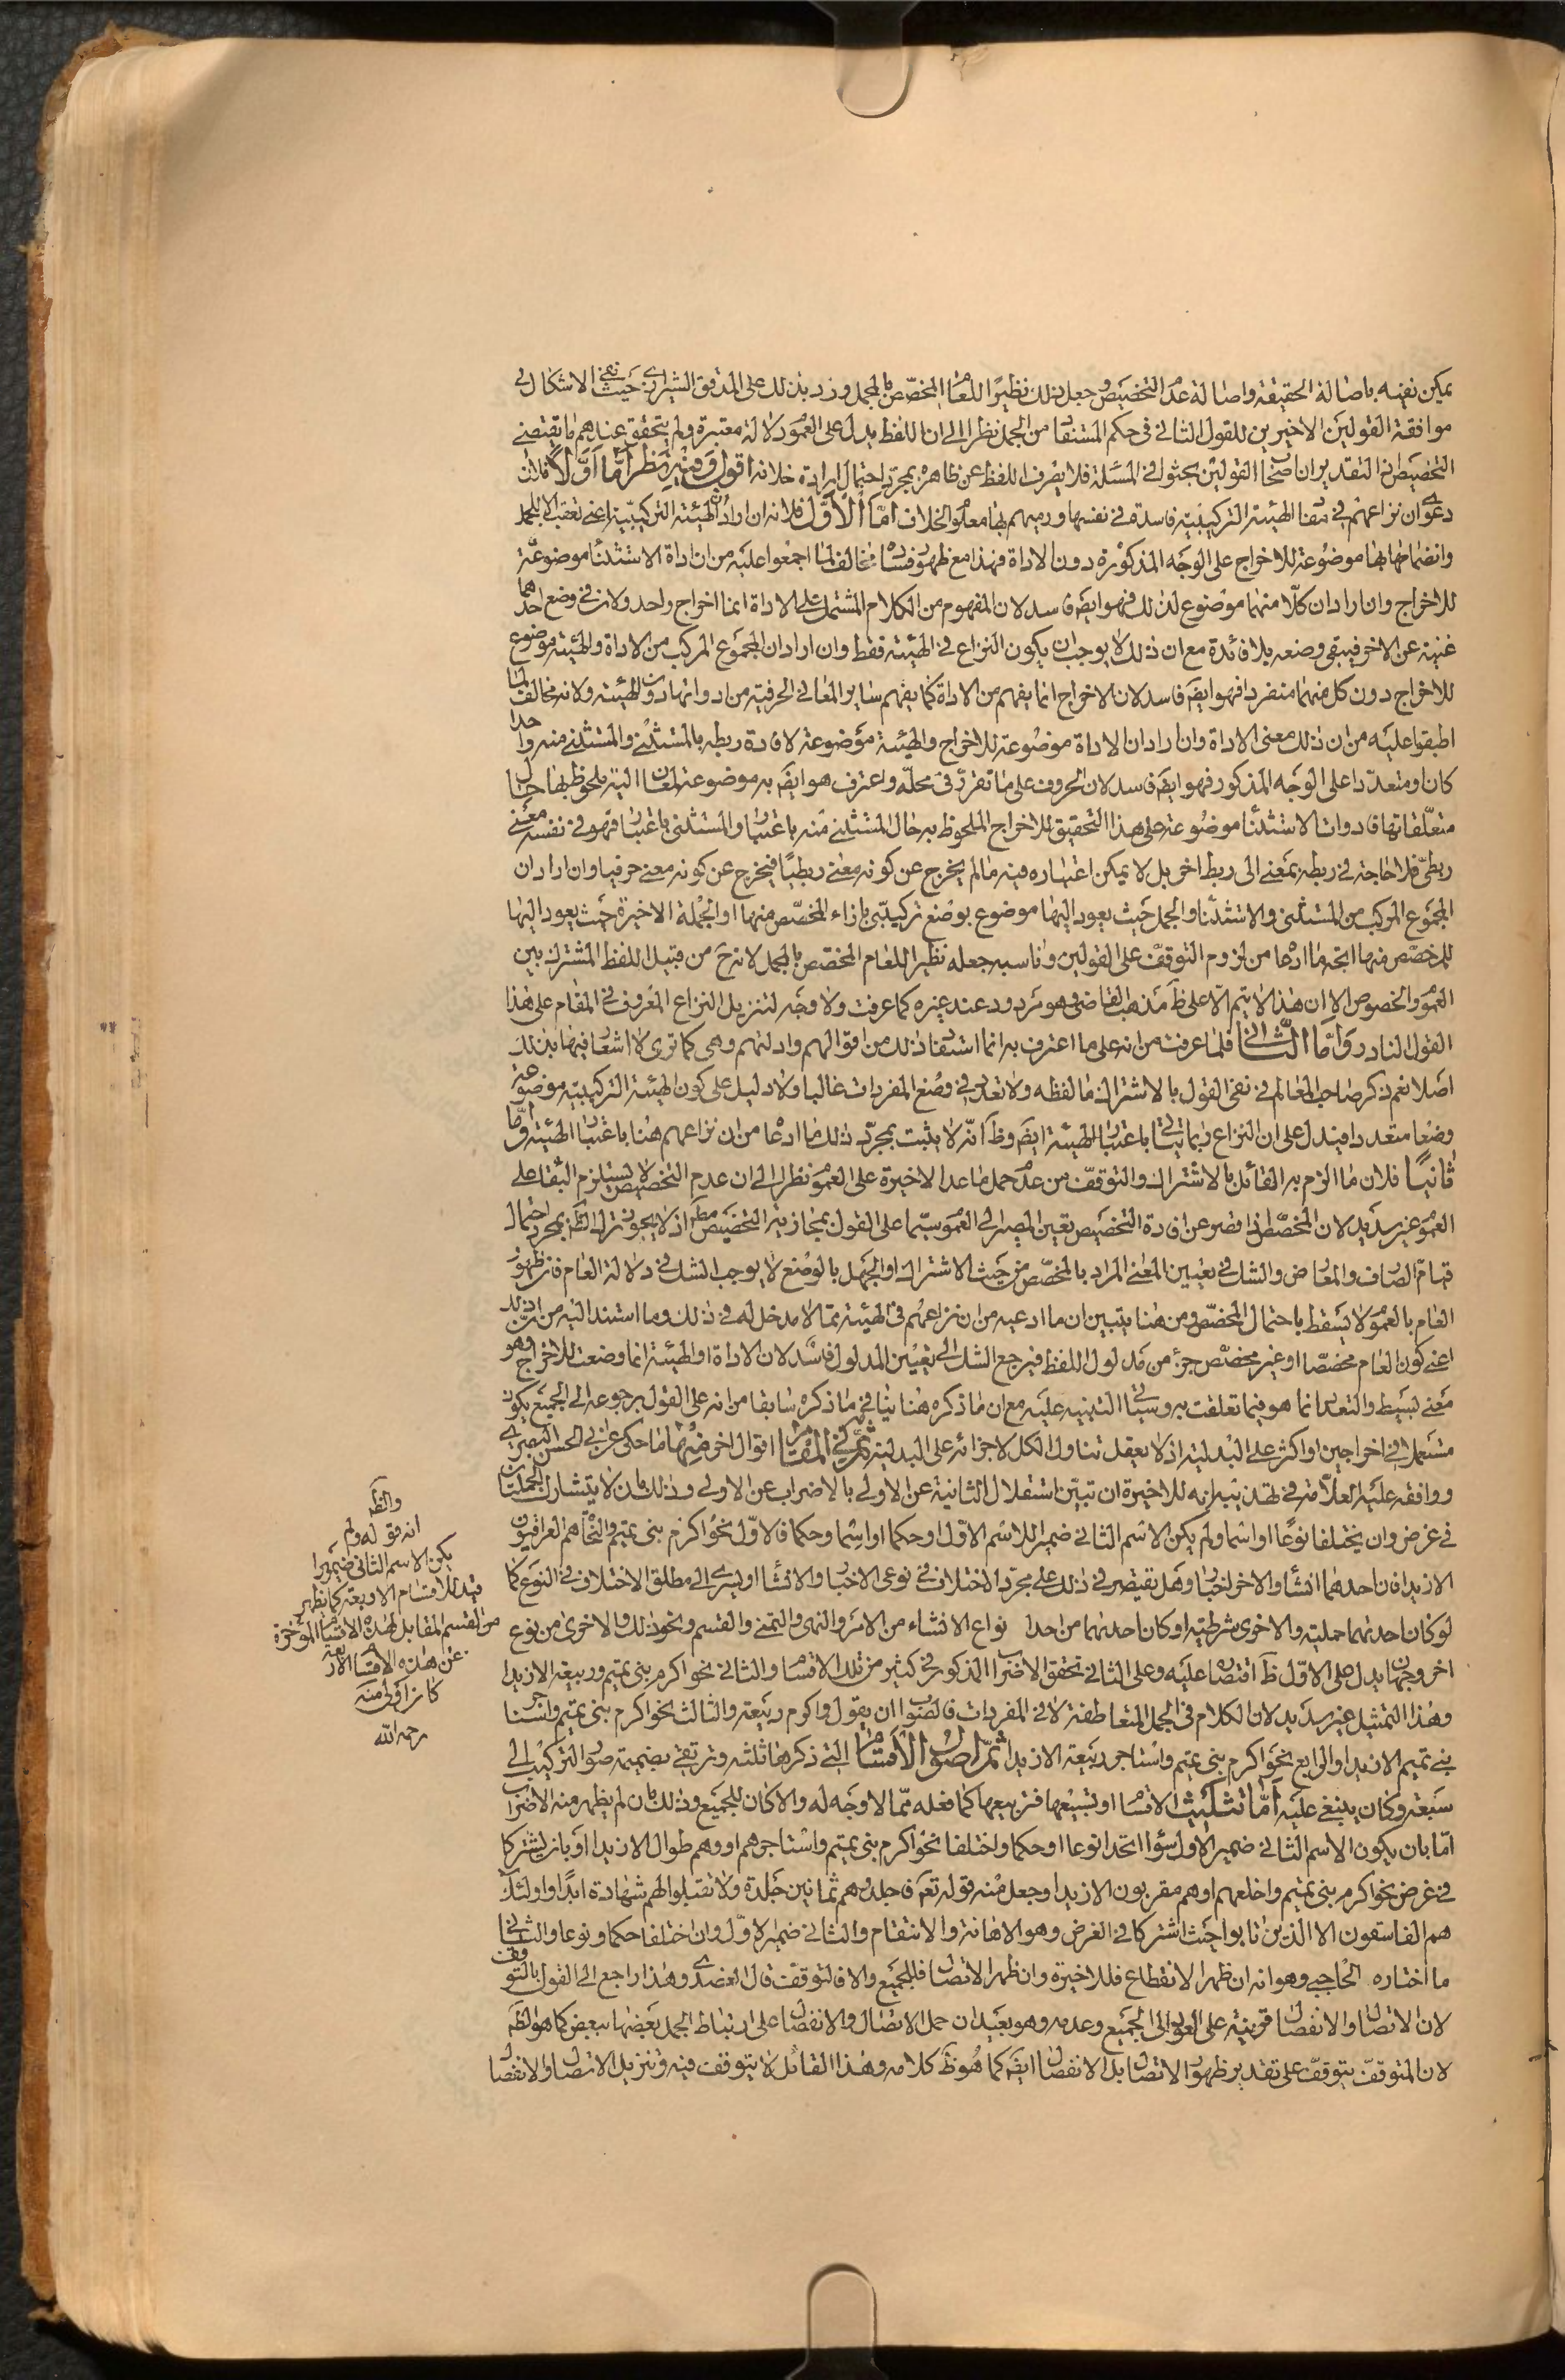 يمكن نفيه باصالة الحقيقة واصالة عدم التخصيص وجعل ذلك نظيرا للعام المخصّص بالمجمل وزد بذلك على المدقق الشيرازى حيث نفى الاشكال فى
موافقة القولين الاخيرين للقول الثانى فى حكم المستفاد من الجمل نظرا الى ان اللفظ يدل على العموم دلالة معتبرة ولم يتحقق عندهم ما يقتضى
التخصيص اذ التقدير ان اصحاب القولين بحثوا فى المسئلة فلا يصرف اللفظ عن ظاهره بمجرد احتمال ارادة خلافه اقول وفيه نظر امّا اوّلا فلان
دعوى ان نزاعهم فى مفاد الهيئة التركيبيّة فاسدة فى نفسها ورميهم بها معلوم الخلاف امّا الاوّل فلانه ان اراد ان الهيئة التركيبيّة اعنى تعقب الاداة للجمل
وانضمامها بها موضوعة للاخراج على الوجه المذكورة دون الاداة فهذا مع ظهور فساده مخالف لما اجمعوا عليه من ان اداة الاستثناء موضوعة
للاخراج وان اراد ان كلّا منهما موضوع لذلك فهو ايضا فاسد لان المفهوم من الكلام المشتمل على الاداة انما اخراج واحد ولان فى وضع احدهما
غنية عن الاخر فيبقى وضعه بلا فائدة مع ان ذلك لا يوجب ان يكون النزاع فى الهيئة فقط وان اراد ان المجموع المركب من الاداة والهيئة موضوع
للاخراج دون كل منهما منفردا فهو ايضا فاسد لان الاخراج انما يفهم من الاداة كما يفهم ساير المعانى الحرفية من ادواتها دون الهيئة ولانه مخالف لما
اطبقوا عليه من ان ذلك معنى الاداة وان اراد ان الاداة موضوعة للاخراج والهيئة موضوعة لافادة ربطه بالمستثنى والمستثنى منه واحدا
كان او متعدّدا على الوجه المذكور فهو ايضا فاسد لان الحروف على ما تقرر فى محلّه واعترف هو ايضا به موضوعة لمعان الية ملحوظ بها حال
متعلّقاتها فادوات الاستثناء موضوعة على هذا التحقيق للاخراج الملحوظ به حال المستثنى منه باعتبار والمستثنى باعتبار فهو فى نفسه معنى
ربطىّ فلا حاجة فى ربطه بمعنى الى ربط اخر بل لا يمكن اعتباره فيه ما لم يخرج عن كونه معنى ربطيّا فيخرج عن كونه معنى حرفيا وان اراد ان
المجموع المركب من المستثنى والاستثناء والجمل حيث يعود اليها موضوع بوضع تركيبىّ بازاء المخصّص منها او الجملة الاخيرة حيث يعود اليها
للمخصّص منها اتجه ما ادعاه من لزوم التوقف على القولين وناسبه جعله نظيرا للعام المخصّص بالمجمل لانه ح من قبيل اللفظ المشترك بين
العموم والخصوص الا ان هذا لا يتم الّا على ظ مذهب القاضى وهو مردود عند غيره كما عرفت ولا وجه لتنزيل النزاع المعروف فى المقام على هذا
القول النادر وامّا الثّانى فلما عرفت من انه على ما اعترف به انما استفاد ذلك من اقوالهم وادلتهم وهى كما ترى لا اشعار فيها بذلك
اصلا نعم ذكر صاحب المعالم فى نفى القول بالاشتراك ما لفظه ولا تعدد فى وضع المفردات غالبا ولا دليل على كون الهيئة التركيبيّة موضوعة
وضعا متعددا فيدل على ان النزاع ربما يتاتى باعتبار الهيئة ايضا وظ انّه لا يثبت بمجرّد ذلك ما ادعاه من ان نزاعهم هنا باعتبار الهيئة وامّا
ثانيا فلان ما الزم به القائل بالاشتراك والتوقف من عدم حمل ما عدا الاخيرة على العموم نظرا الى ان عدم التخصيص لا يستلزم البقاء على
العموم غير سديد لان المخصّص اذا قصر عن افادة التخصيص تعين المصير الى العموم سيّما على القول بمجازية التخصيص مطلقا اذ لا يجوز ترك الظ بمجرد احتمال
قيام الصارف والمعارض والشك فى تعيين المعنى المراد بالمخصّص من حيث الاشتراك او الجهل بالوضع لا يوجب الشك فى دلالة العام فان ظهور
العام بالعموم لا يسقط باحتمال المخصّص ومن هنا يتبين ان ما ادعيه من ان نزاعهم فى الهيئة ممّا لا مدخل له فى ذلك وما استند اليه من ان ذلك
اعنى كون العام مخصّصا او غير مخصّص جزء من مدلول اللفظ فيرجع الشك الى تعيين المدلول فاسد لان الاداة او الهيئة انما وضعت للاخراج وهو
معنى بسيط والتعدد انما هو فيما تعلقت به وسياتى التنبيه عليه مع ان ما ذكره هنا ينافى ما ذكره سابقا من انه على القول برجوعه الى الجميع يكون
مستعملا فى اخراجين او اكثر على البدلية اذ لا يعقل تناول الكل لاجزائه على البدلية ثمّ فى المقام اقوال اخر منها ما حكى عن ابى الحسين البصرى
ووافقه عليه العلّامة فى تهذيبه انه للاخيرة ان تبيّن استقلال الثانية عن الاولى بالاضراب عن الاولى وذلك بان لا يتشارك الجملتان
فى غرض وان يختلفا نوعا او اسما ولم يكن الاسم الثانى ضميرا للاسم الاوّل او حكما او اسما وحكما فالاوّل نحو اكرم بنى تميم والنّحاة هم العراقيون
الا زيدا فان احدهما انشاء والاخر اخبار وهل يقتصر فى ذلك على مجرّد الاختلاف فى نوعى الاخبار والانشاء او يسرى الى مطلق الاختلاف فى النوع كما
لو كان احدهما حملية والاخرى شرطية او كان احدهما من احد انواع الانشاء من الامر والنهى والتمنى والقسم ونحو ذلك والاخرى من نوع
اخر وجهان يدل على الاوّل ظ اقتصاره عليه وعلى الثانى تحقق الاضراب المذكور فى كثير من تلك الاقسام والثانى نحو اكرم بنى تميم وربيعة الا زيدا
وهذا التمثيل غير سديد لان الكلام فى الجمل المتعاطفة لا فى المفردات فالصّواب ان يقول واكرم ربيعة والثالث نحو اكرم بنى تميم واستاجر
بنى تميم الا زيدا والرابع نحو اكرم بنى تميم واستاجر ربيعة الا زيدا ثمّ اصول الاقسام التى ذكرها ثلثة وترتقى بضميمة صور التركيب الى
سبعة وكان ينبغى عليه امّا تثليث الاقسام او تسبيعها فتربيعها كما فعله ممّا لا وجه له والا كان للجميع وذلك بان لم يظهر منه الاضراب
امّا بان يكون الاسم الثانى ضمير الاول سواء اتحدا نوعا او حكما واختلفا نحو اكرم بنى تميم واستاجرهم او وهم طوال الا زيدا او بان يشتركا
فى غرض نحو اكرم بنى تميم واخلعهم او هم مقربون الا زيدا وجعل منه قوله تعه فاجلدوهم ثمانين جلدة ولا تقبلوا لهم شهادة ابدا واولئك
هم الفاسقون الا الذين تابوا حيث اشتركا فى الغرض وهو الاهانة والانتقام والثانى ضمير الاوّل وان اختلفا حكما ونوعا والثانى
ما اختاره الحاجبى وهو انه ان ظهر الانقطاع فللاخيرة وان ظهر الاتصال فللجميع والا فالتوقف قال العضدى وهذا راجع الى القول بالتوقف
لان الاتصال والانفصال قرينة على العود الى الجميع وعدمه وهو بعيد ان حمل الاتصال والانفصال على ارتباط الجمل بعضها ببعض كما هو الظ
لان المتوقف يتوقف على تقدير ظهور الاتصال بل الانفصال ايضا كما هو ظ كلامه وهذا القائل لا يتوقف فيه وتنزيل الاتصال والانفصال
والظ
ان قوله ولم
يكن الاسم الثانى ضميرا
قيد للاقسام الاربعة كما يظهر
من القسم المقابل لهذه الاقسام المؤخرة
عن هذه الاقسام الاربعة
كان اولى منه
رحمه الله